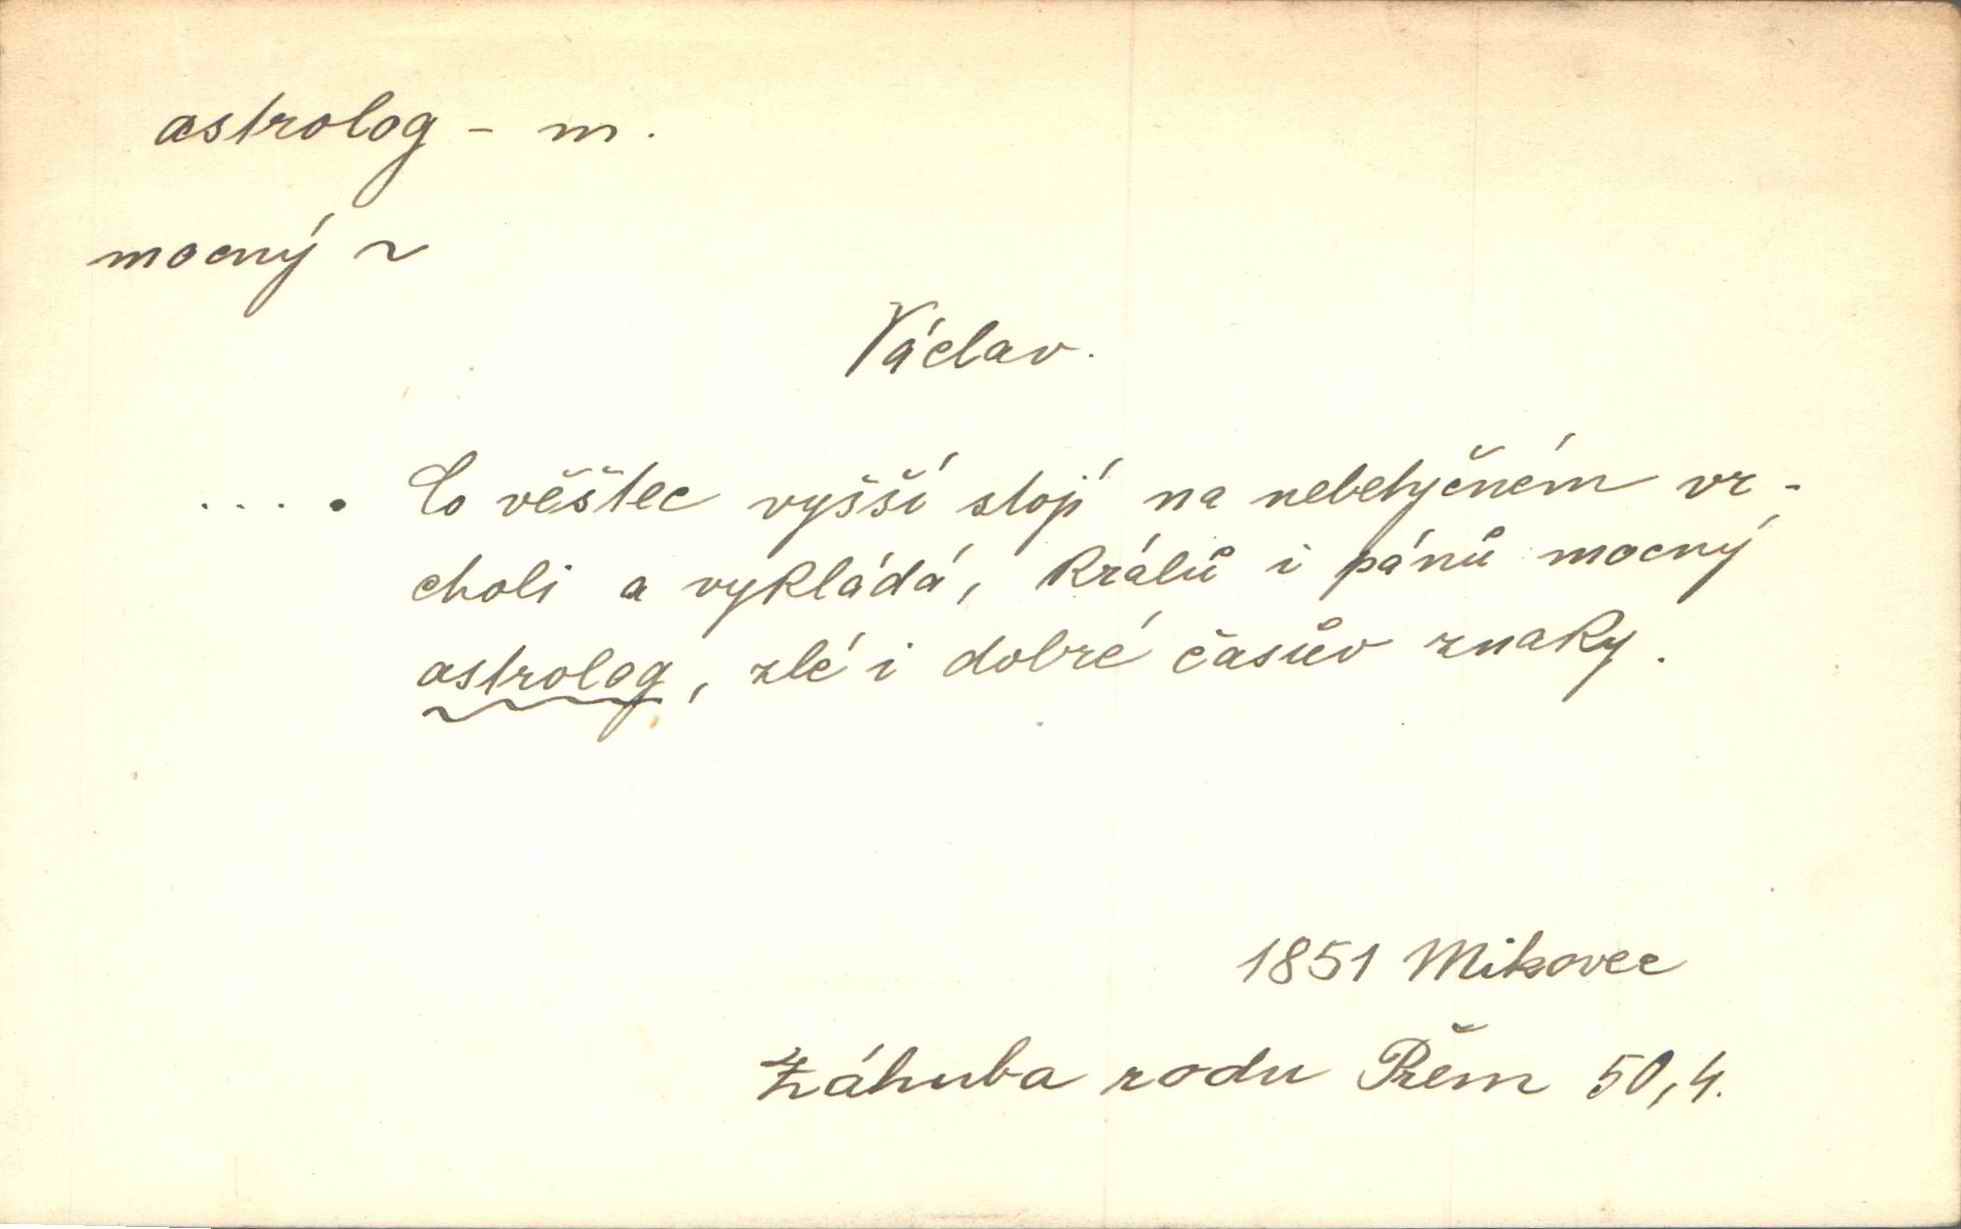 astrolog - m.
mocný ~
Václav.
.... Co věštec vyšší stojí na nebetyčném vr-
choli a vykládá, králů i pánů mocný
astrolog, zlé i dobré časův znaky.
1851 Mikovec
Záhuba rodu Přem 50,4.